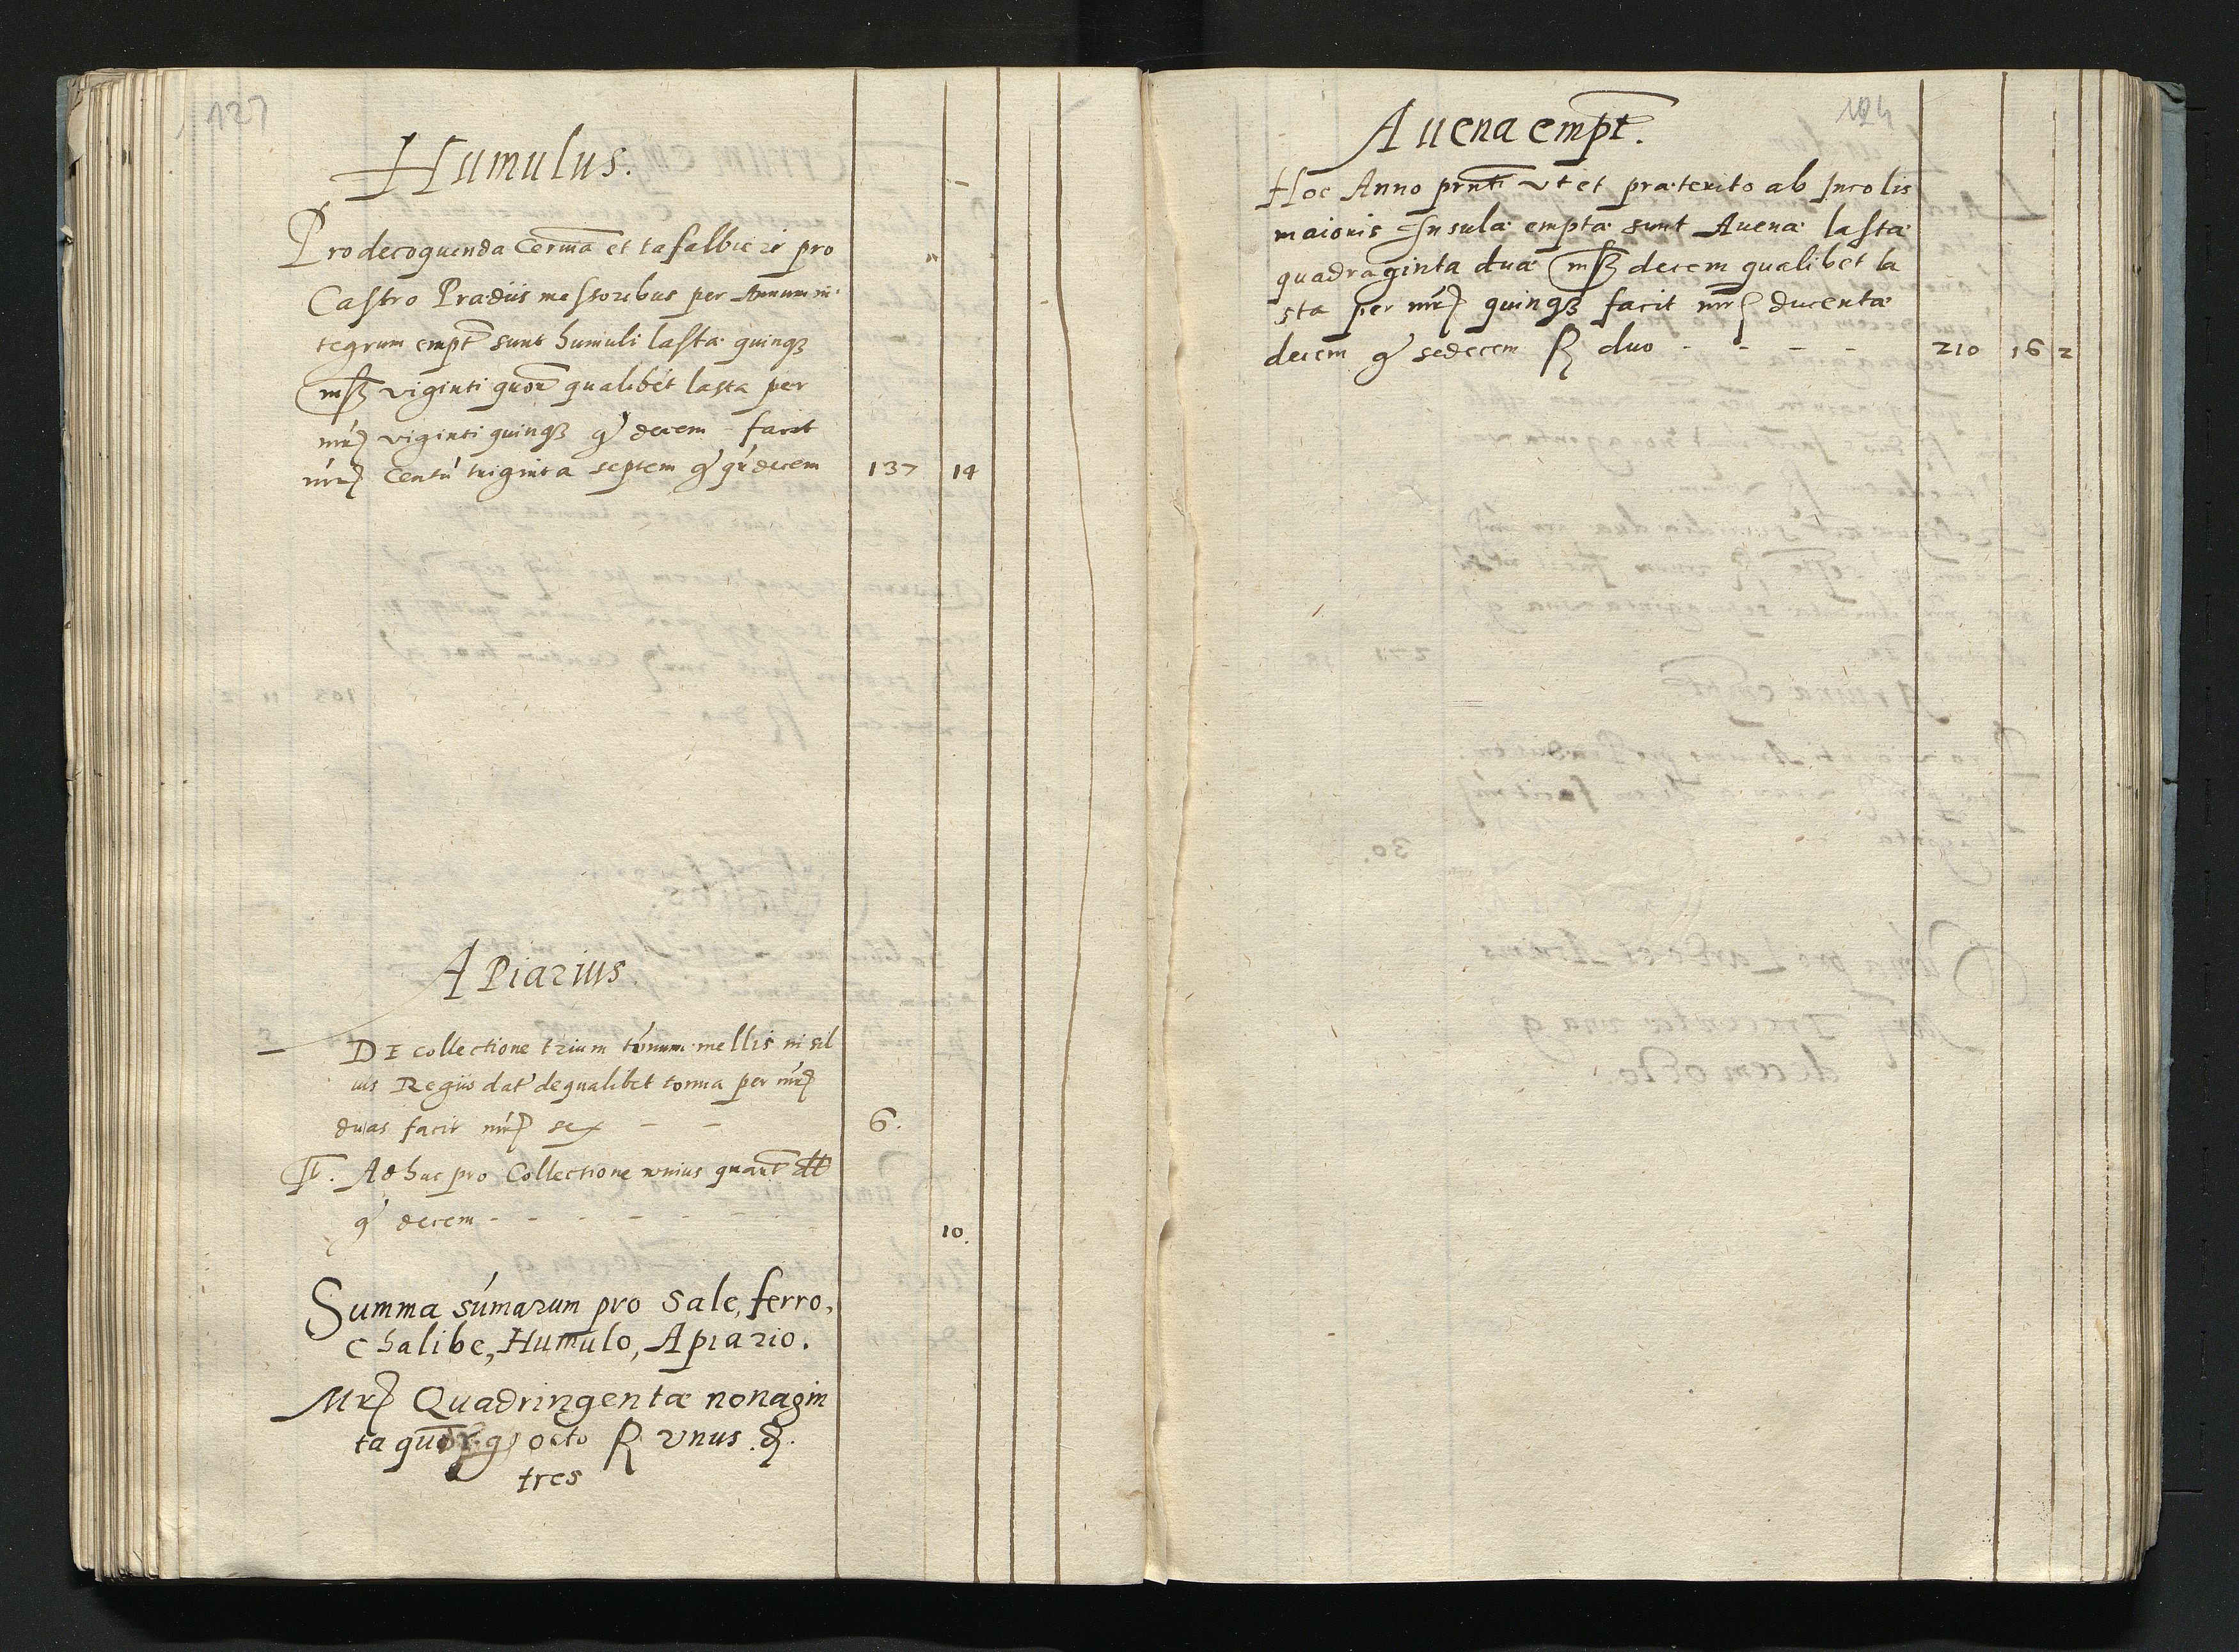 127
Humulus.
Pro decoquenda Cerm̄a et tafalbieri pro
Castro Prædiis messoribus per Annum in
tegrum empt sunt humuli lastæ quinqꝫ
viginti quor qualibet lasta per
mrꝭ viginti quinqꝫ gꝭ decem facit
mrꝭ Centú triginta septem gꝭ qr decem 137 14
APiarius
DE collectione trium tonnarum mellis in sil
uis Regiis dat' de qualibet tonna per mrꝭ
duas facit mrꝭ sex - - 6.
It. Adhuc pro Collectione unius quart dt
gꝭ decem - - - - - - 10.
Summa súmarum pro Sale, ferro,
chalibe, Humulo, Apiario.
Mrꝭ Quadringentæ nonagin
ta quor gꝭ octo ß vnus ₰.
tres
124
Auena empt.
Hoc Anno prnti vt et præterito ab Incolis
maioris Insulæ emptæ sunt Auenæ lastæ
quadraginta duæ decem qualibet la
sta per mrꝭ quinqꝫ facit mrꝭ ducentæ
decem gꝭ sedecem ß duo - - - - 210 16 2